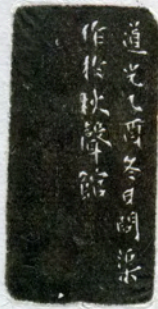 道光乙酉冬日閬渠
作於秋聲館